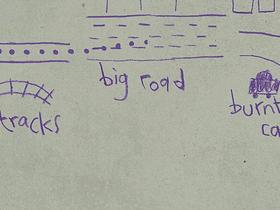 big road
tracks
burnt
ca